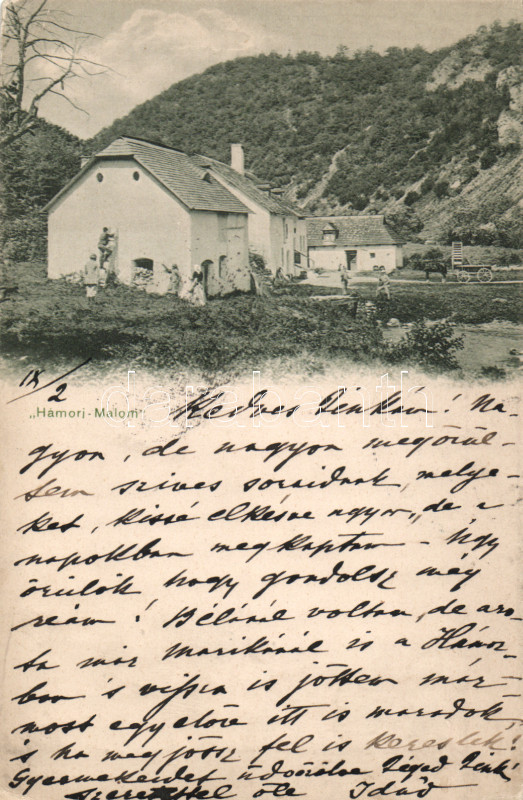 IX/2
„Hámori-Malom"
Kedves Linkám! Na-
gyon, de nagyon megörül-
tem szives soraidnak, melye-
ket, kissé elkésve ugyan, de a
napokban megkaptam - Úgy
örülök hogy gondolsz még
reám! Bélánál voltam, de azó-
ta már Marikánál is a Hámor-
ban s vissza is jöttem már
most egyelőre itt is maradok,
s ha megjössz fel is kereslek!
Gyermekeidet üdvözölve Téged
szeretettel öle
darabanth